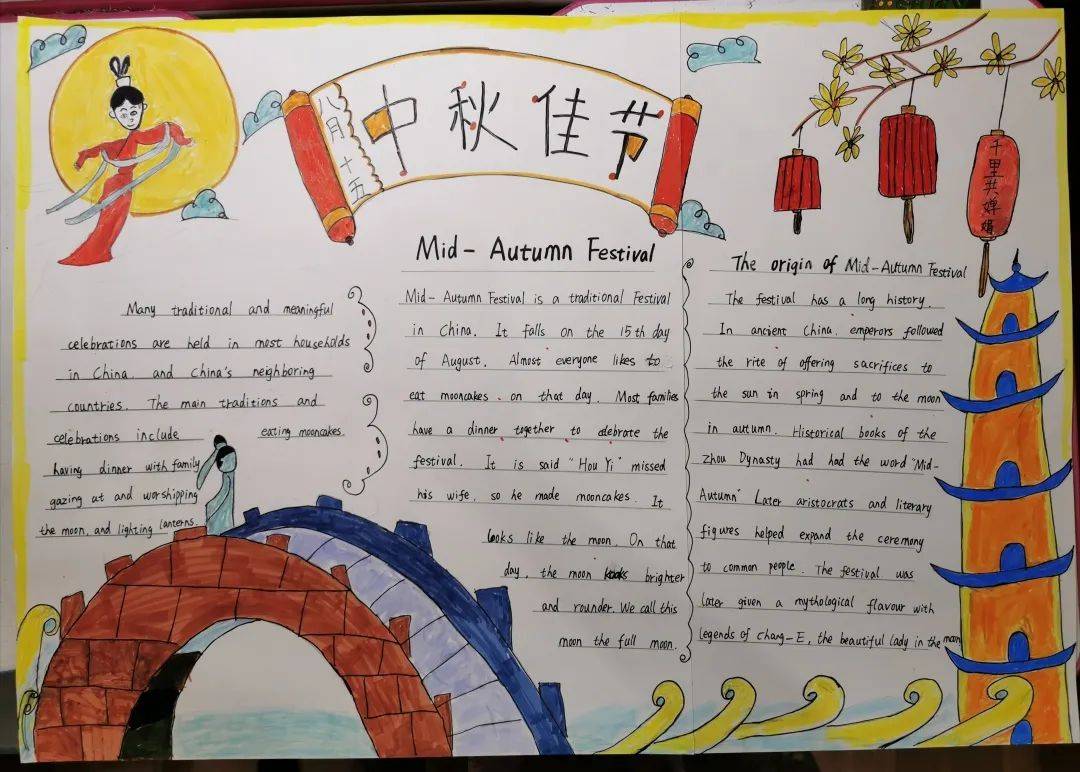 八月十五
中秋佳节
千里共婵娟
Many traditional and meaningful
celebrations are held in most households
in China. and China's neighboring
countries. The main traditions and
celebrations include eating mooncakes.
having dinner with family
gazing at and worshipping
the moon, and lighting lanterns.
Mid-Autumn Festival
Mid-Autumn Festival is a traditional Festival
in China. It falls on the 15th day
of August. Almost everyone likes to
eat mooncakes on that day. Most families
have a dinner together to celebrate the
festival. It is said "Hou Yi" missed
his wife, so he made mooncakes. It
looks like the moon. On that
day, the moon looks brighter
and rounder. We call this
moon the full moon.
The origin of Mid-Autumn Festival
The festival has a long history.
In ancient China, emperors followed
the rite of offering sacrifices to
the sun in spring and to the moon
in autumn. Historical books of the
Zhou Dynasty had had the word "Mid-
Autumn" Later aristocrats and literary
figures helped expand the ceremony
to common people. The festival was
later given a mythological flavour with
legends of Chang-E, the beautiful lady in the moon